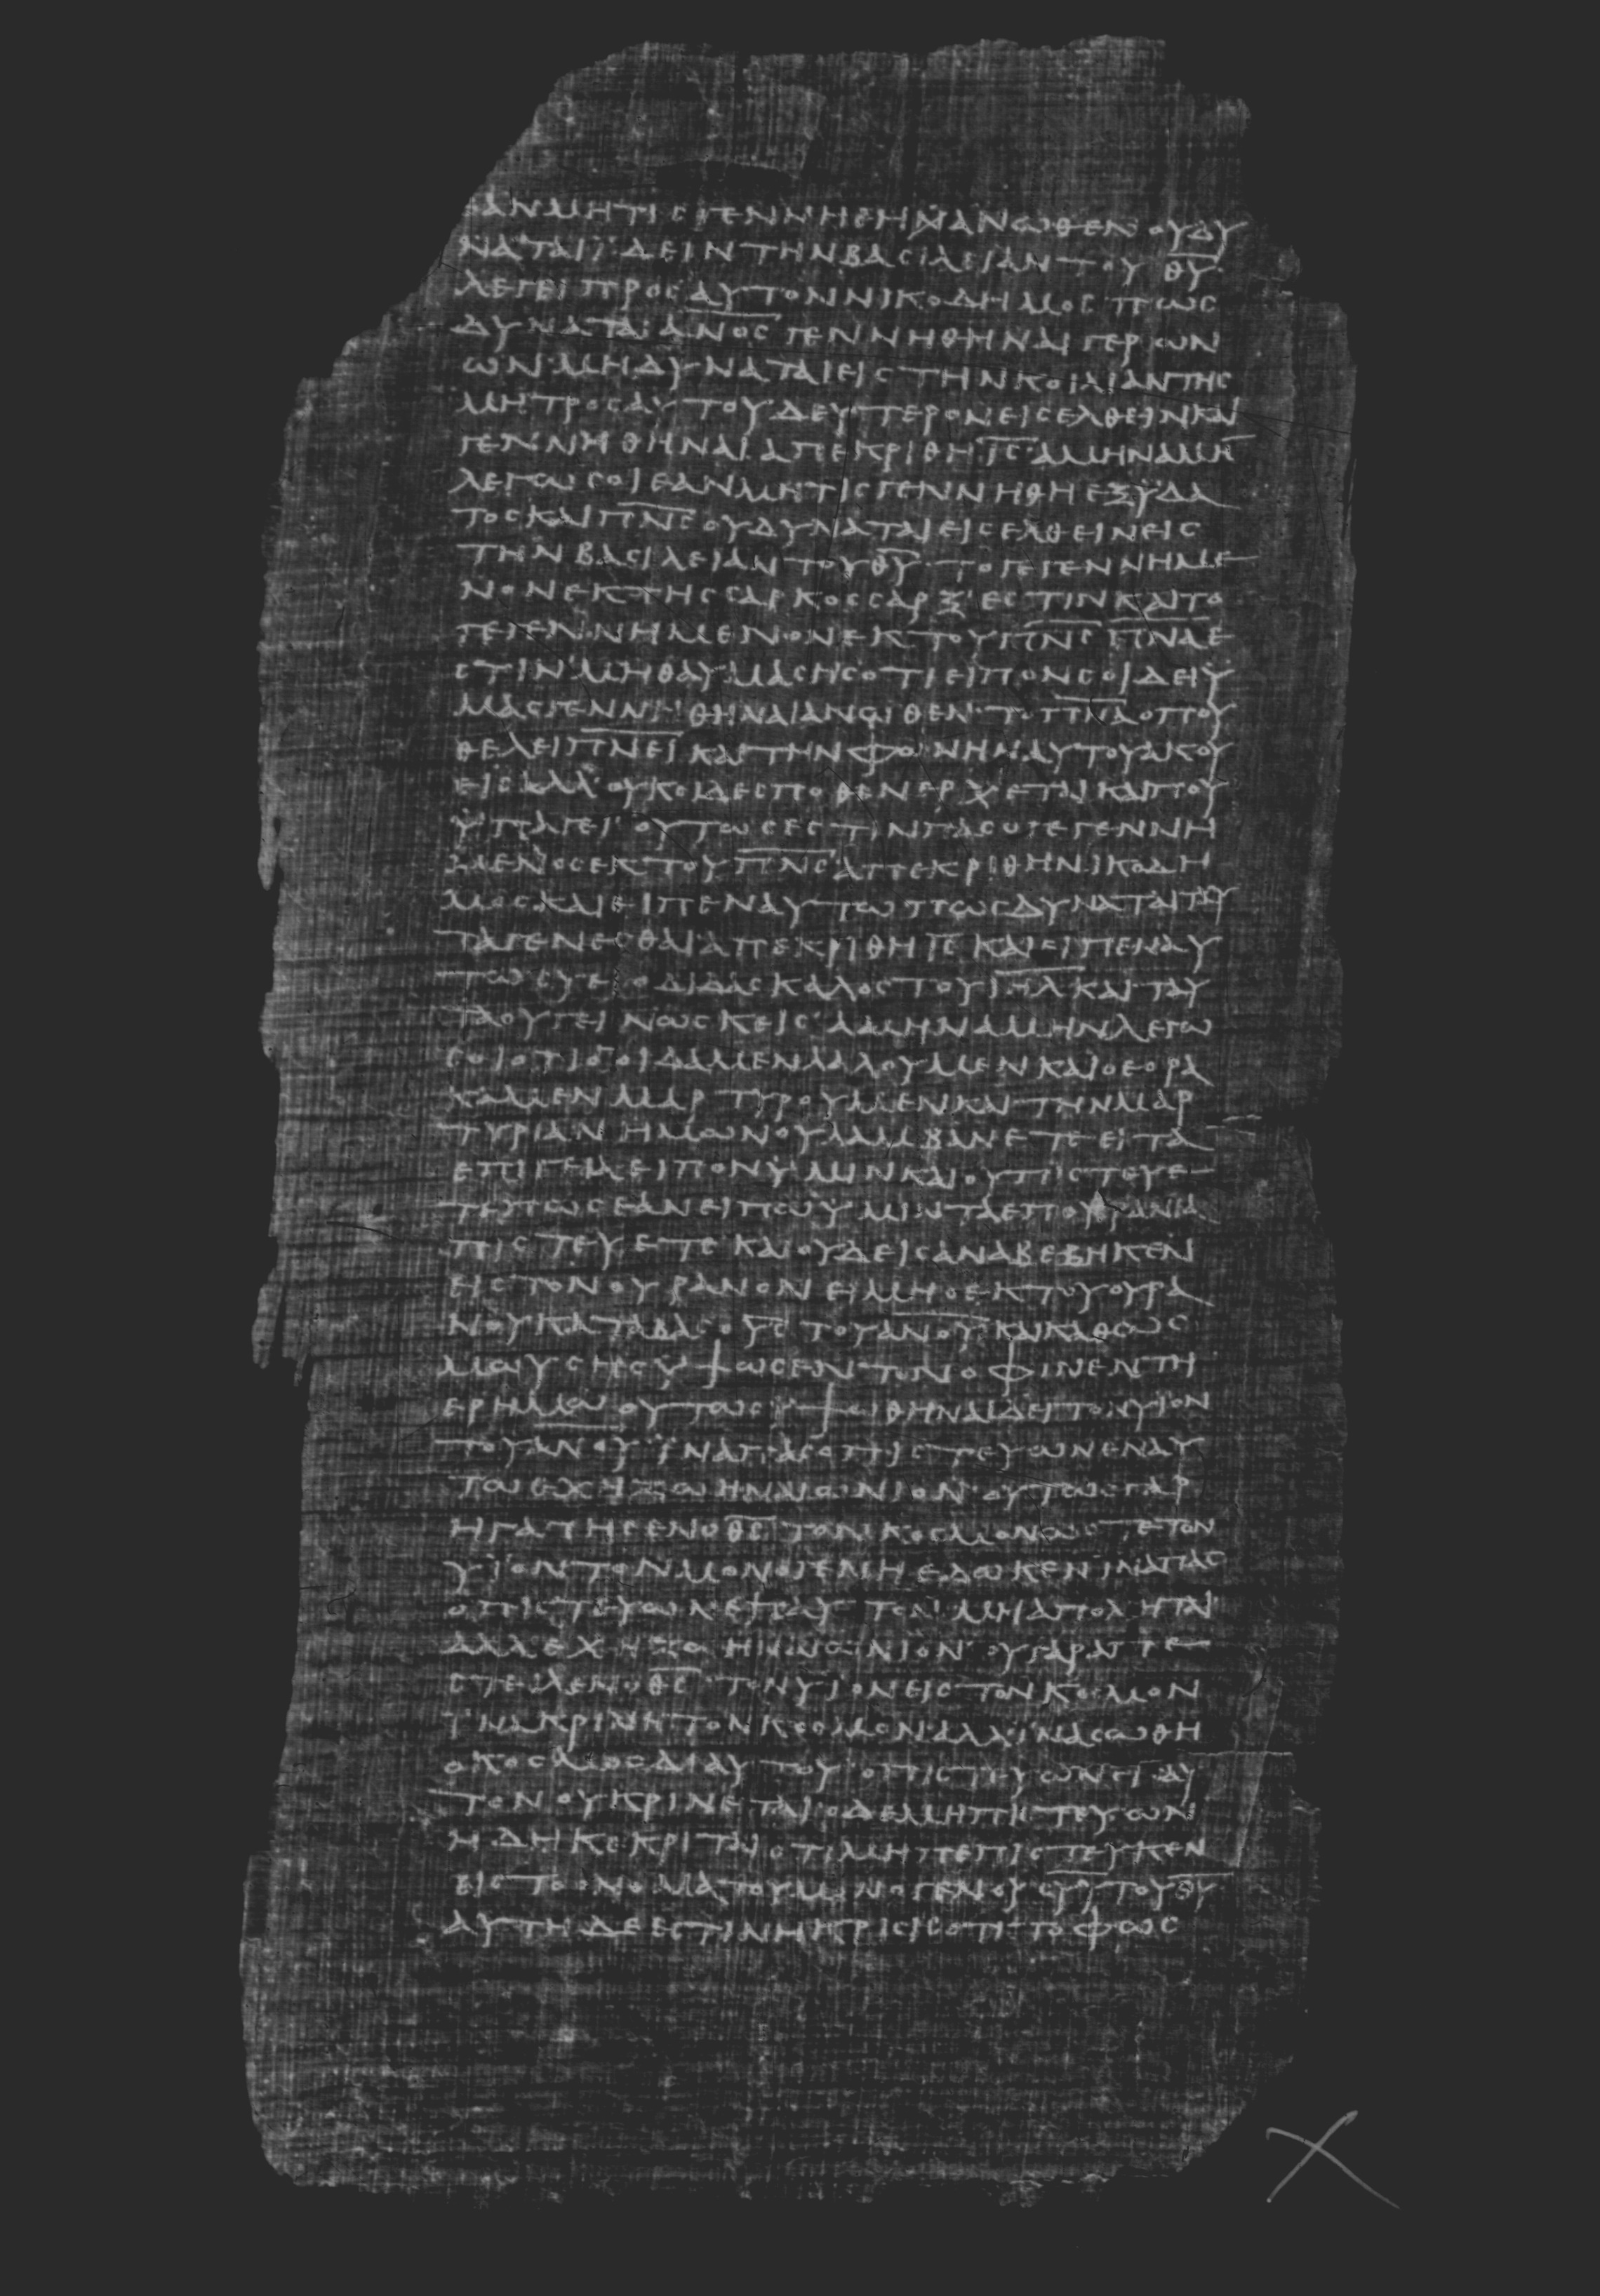 ΑΝΜΗΤΙϹΓΕΝΝΗΘΗΝΑΝΩΘΕΝ ΟΥΔΥ
ΝΑΤΑΙΪΔΕΙΝΤΗΝΒΑϹΙΛΕΙΑΝΤΟΥ Θ̅Υ̅·
ΛΕΓΕΙΠΡΟϹΑΥΤΟΝΝΙΚΟΔΗΜΟϹ ΠΩϹ
ΔΥΝΑΤΑΙΑ̅Ν̅Ο̅Ϲ̅ ΓΕΝΝΗΘΗΝΑΙΓΕΡΩΝ
ΩΝ·ΜΗΔΥΝΑΤΑΙΕΙϹΤΗΝΚΟΙΛΙΑΝΤΗϹ
ΜΗΤΡΟϹΑΥΤΟΥΔΕΥΤΕΡΟΝΕΙϹΕΛΘΕΙΝΚΑΙ
ΓΕΝΝΗΘΗΝΑΙ·ΑΠΕΚΡΙΘΗΙ̅Ϲ̅·ΑΜΗΝΑΜΗ̅
ΛΕΓΩϹΟΙΕΑΝΜΗΤΙϹΓΕΝΝΗΘΗΕΞΥΔΑ
ΤΟϹΚΑΙΠ̅Ν̅Ϲ̅ΟΥΔΥΝΑΤΑΙΕΙϹΕΛΘΕΙΝΕΙϹ
ΤΗΝΒΑϹΙΛΕΙΑΝΤΟΥΘ̅Υ̅·ΤΟΓΕΓΕΝΝΗΜΕ
ΝΟΝΕΚΤΗϹϹΑΡΚΟϹϹΑΡΞ'ΕϹΤΙΝΚΑΙΤΟ
ΓΕΓΕΝΝΗΜΕΝΟΝΕΚΤΟΥΠ̅Ν̅Ϲ̅ Π̅Ν̅Α̅Ε
ϹΤΙΝ·ΜΗΘΑΥΜΑϹΗϹΟΤΙΕΙΠΟΝϹΟΙΔΕΙΥ
ΜΑϹΓΕΝΝΗΘΗΝΑΙΑΝΩΘΕΝ·ΤΟΠ̅Ν̅Α̅ΟΠΟΥ
ΘΕΛΕΙΠ̅Ν̅Ε̅Ι̅ ΚΑΙΤΗΝΦΩΝΗΝΑΥΤΟΥΑΚΟΥ
ΕΙϹΑΛΛ'ΟΥΚΟΙΔΕϹΠΟΘΕΝΕΡΧΕΤΑΙΚΑΙΠΟΥ
ΥΠΑΓΕΙ·ΟΥΤΩϹΕϹΤΙΝΠΑϹΟΓΕΓΕΝΝΗ
ΜΕΝΟϹΕΚΤΟΥΠ̅Ν̅Ϲ̅·ΑΠΕΚΡΙΘΗΝΙΚΟΔΗ
ΜΟϹΚΑΙΕΙΠΕΝΑΥΤΩΠΩϹΔΥΝΑΤΑΙΤΑΥ
ΤΑΓΕΝΕϹΘΑΙ·ΑΠΕΚΡΙΘΗΙ̅Ϲ̅ ΚΑΙΕΙΠΕΝΑΥ
ΤΩϹΥΕΙΟΔΙΔΑϹΚΑΛΟϹΤΟΥΙ̅Η̅Λ̅ΚΑΙΤΑΥ
ΤΑΟΥΓΕΙΝΩϹΚΕΙϹ·ΑΜΗΝΑΜΗΝΛΕΓΩ
ϹΟΙΟΤΙΟΟΙΔΑΜΕΝΛΑΛΟΥΜΕΝΚΑΙΟΕΟΡΑ
ΚΑΜΕΝΜΑΡΤΥΡΟΥΜΕΝΚΑΙΤΗΝΜΑΡ
ΤΥΡΙΑΝΗΜΩΝΟΥΛΑΜΒΑΝΕΤΕ·ΕΙΤΑ
ΕΠΙΓΕΙΑΕΙΠΟΝΫΜΙΝΚΑΙΟΥΠΙϹΤΕΥΕ
ΤΕΠΩϹΕΑΝΕΙΠΩΫΜΙΝΤΑΕΠΟΥΡΑΝΙΑ
ΠΙϹΤΕΥΕΤΕ ΚΑΙΟΥΔΕΙϹΑΝΑΒΕΒΗΚΕΝ
ΕΙϹΤΟΝΟΥΡΑΝΟΝΕΙΜΗΟΕΚΤΟΥΟΥΡΑ
ΝΟΥΚΑΤΑΒΑϹΟΥ̅Ϲ̅ ΤΟΥΑ̅Ν̅Ο̅Υ̅·ΚΑΙΚΑΘΩϹ
ΜΩΥϹΗϹΥΨΩϹΕΝΤΟΝΟΦΙΝΕΝΤΗ
ΕΡΗΜΩ ΟΥΤΩϹΥΨΩΘΗΝΑΙΔΕΙΤΟΝΥΙΟΝ
ΤΟΥΑ̅Ν̅Ο̅Υ̅ ΪΝΑΠΑϹΟΠΙϹΤΕΥΩΝΕΝΑΥ
ΤΩΕΧΗΖΩΗΝΑΙΩΝΙΟΝ·ΟΥΤΩϹΓΑΡ
ΗΓΑΠΗϹΕΝΟΘ̅Ϲ̅ ΤΟΝΚΟϹΜΟΝΩϹΤΕΤΟΝ
ΥΙΟΝΤΟΝΜΟΝΟΓΕΝΗΕΔΩΚΕΝΙΝΑΠΑϹ
ΟΠΙϹΤΕΥΩΝΕΠΑΥΤΟΝ ΜΗΑΠΟΛΗΤΑΙ
ΑΛΛΕΧΗΖΩΗΝΑΙΩΝΙΟΝ·ΟΥΓΑΡΑΠΕ
ϹΤΕΙΛΕΝΟΘ̅Ϲ̅ ΤΟΝΥΙΟΝΕΙϹΤΟΝΚΟϹΜΟΝ
ΪΝΑΚΡΙΝΗΤΟΝΚΟϹΜΟΝΑΛΛΪΝΑϹΩΘΗ
ΟΚΟϹΜΟϹΔΙΑΥΤΟΥ·ΟΠΙϹΤΕΥΩΝΕΙϹΑΥ
ΤΟΝΟΥΚΡΙΝΕΤΑΙ·ΟΔΕΜΗΠΙϹΤΕΥΩΝ
ΗΔΗΚΕΚΡΙΤΑΙΟΤΙΜΗΠΕΠΙϹΤΕΥΚΕΝ
ΕΙϹΤΟΟΝΟΜΑΤΟΥΜΟΝΟΓΕΝΟΥϹΥ̅Υ̅ΤΟΥΘ̅Υ̅
ΑΥΤΗΔΕΕϹΤΙΝΗΚΡΙϹΙϹΟΤΙΤΟΦΩϹ